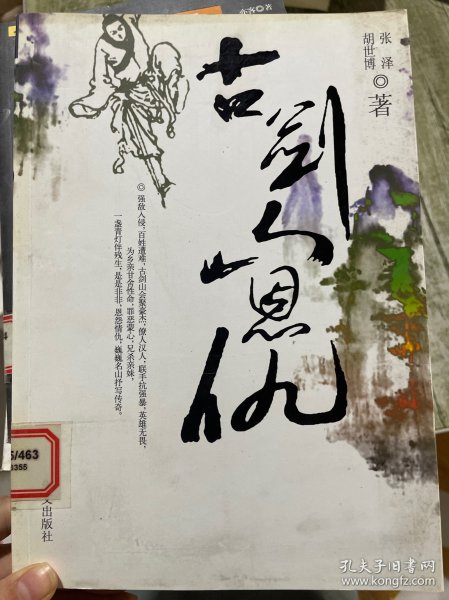 亦客◎著
张泽
胡世博
◎著
古剑山恩仇
◎强敌入侵，百姓遭难，古剑山会聚豪杰，僚人汉人，联手抗强暴，英雄无畏，
为乡亲甘舍性命，罪恶蒙心，兄杀亲妹，
一盏青灯伴残生，是是非非，恩怨情仇，巍巍名山抒写传奇。
/463
3355
文出版社
孔夫子旧书网
www.kongfz.com